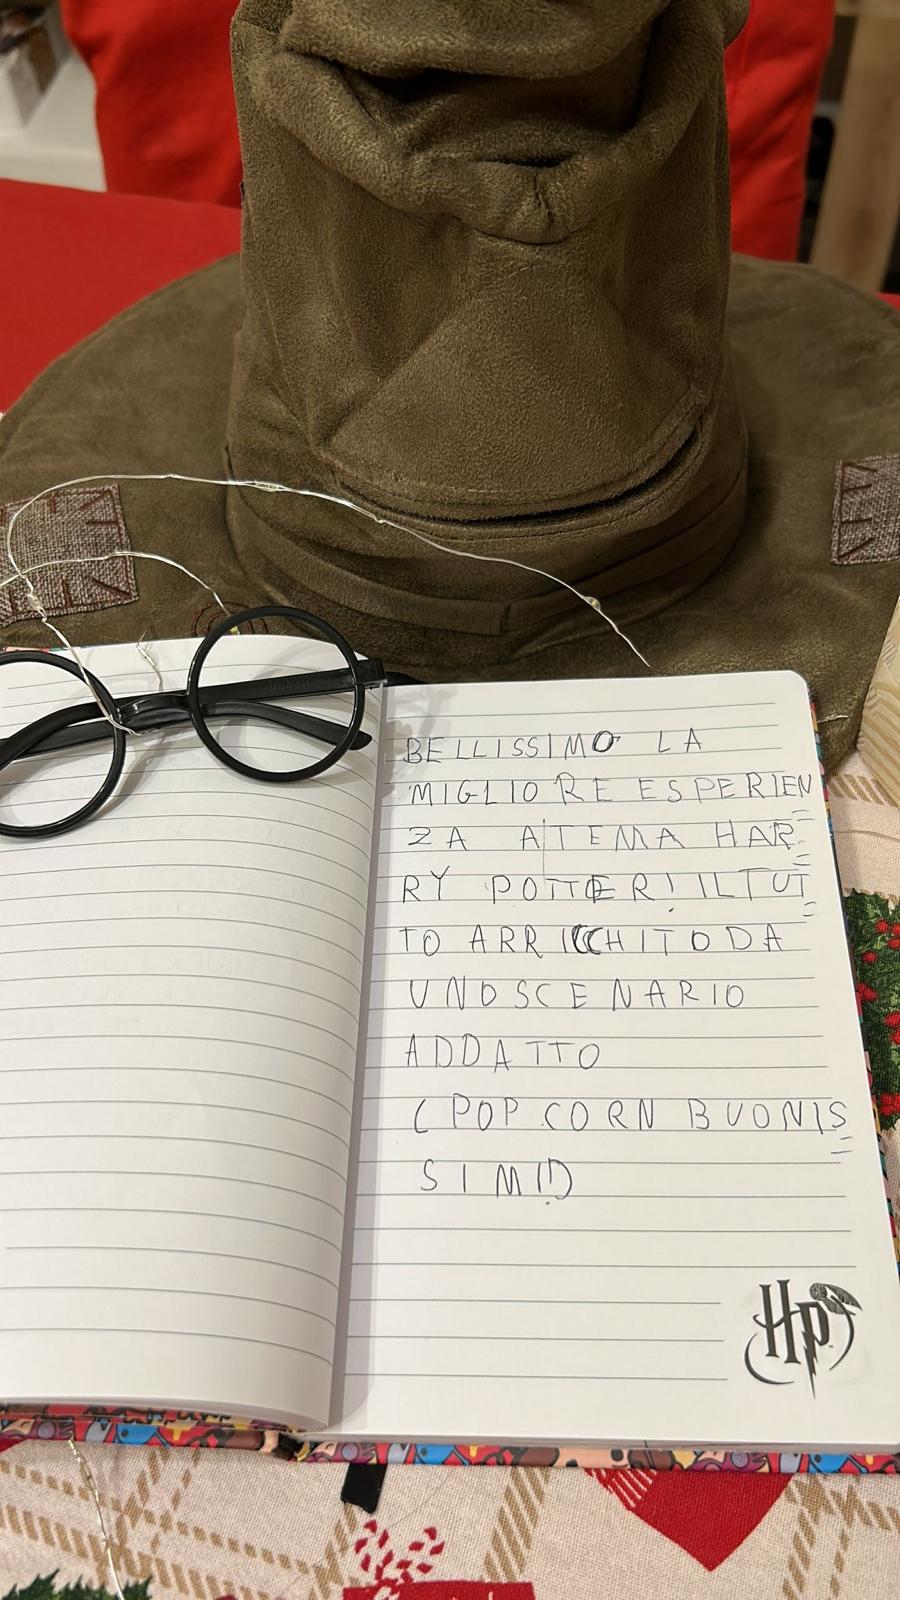 BELLISSIMO LA
MIGLIORE ESPERIEN
ZA A TEMA HAR
RY POTTER! IL TUT
TO ARRICCHITO DA
UNO SCENARIO
ADDATTO
(POP CORN BUONIS
SIMI!)
HP